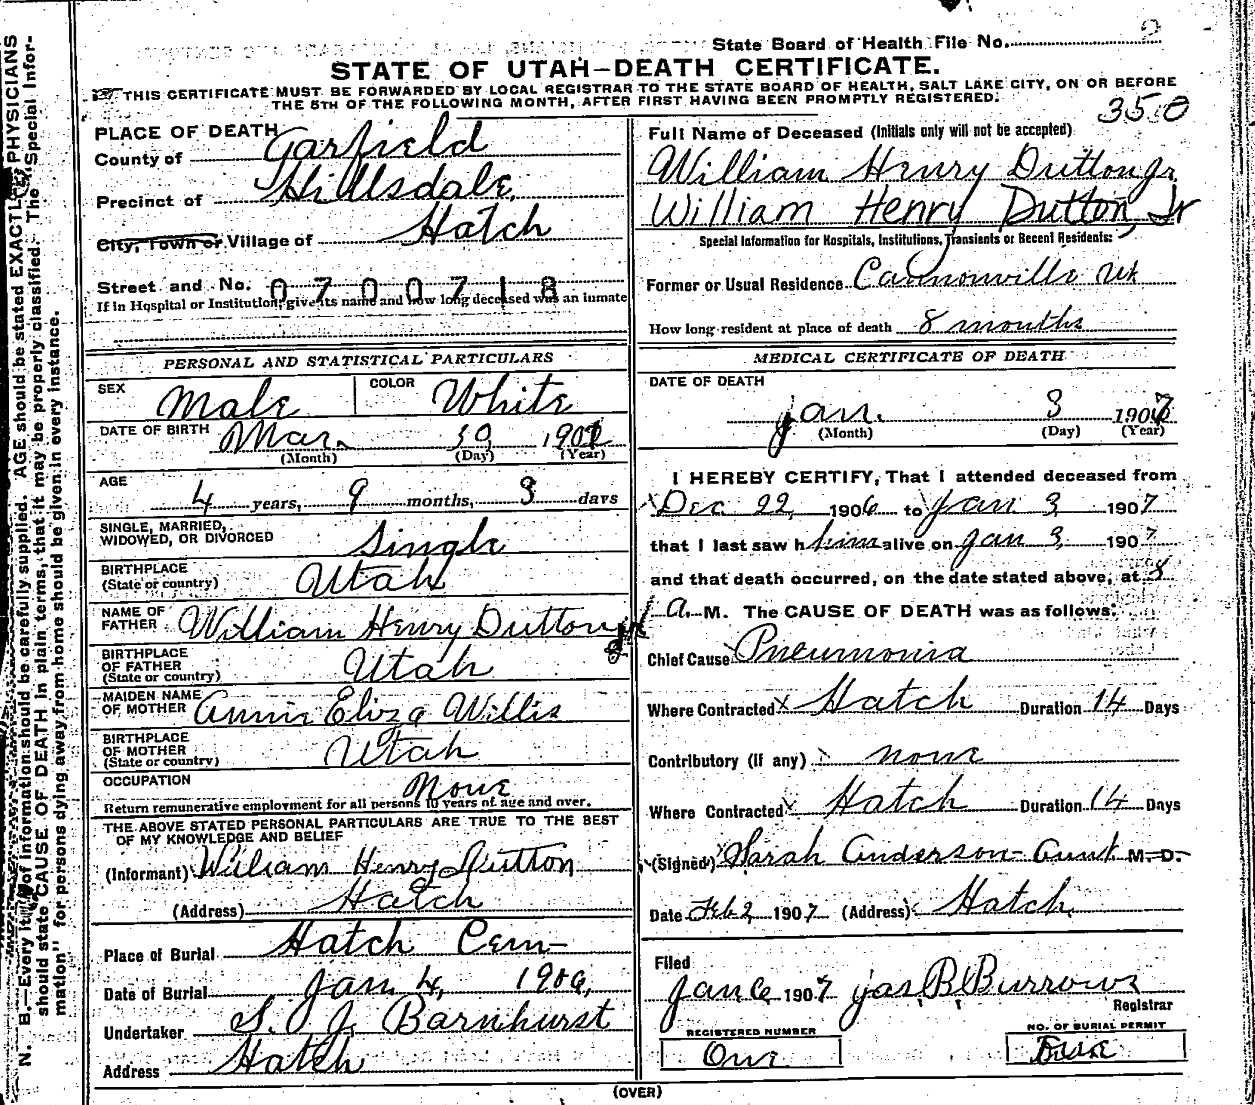 State Board of Health File No.
STATE OF UTAH—DEATH CERTIFICATE.
THIS CERTIFICATE MUST BE FORWARDED BY LOCAL REGISTRAR TO THE STATE BOARD OF HEALTH, SALT LAKE CITY, ON OR BEFORE
THE 5TH OF THE FOLLOWING MONTH, AFTER FIRST HAVING BEEN PROMPTLY REGISTERED.
350
PLACE OF DEATH
County of Garfield
Precinct of Hillsdale
City, Town or Village of Hatch
Street and No. 0700718
If in Hospital or Institution, give its name and how long deceased was an inmate
PERSONAL AND STATISTICAL PARTICULARS
SEX Male COLOR White
DATE OF BIRTH Mar. 30 1902
(Month) (Day) (Year)
AGE 4 years, 9 months, 3 days
SINGLE, MARRIED, WIDOWED, OR DIVORCED Single
BIRTHPLACE (State or country) Utah
NAME OF FATHER William Henry Dutton
BIRTHPLACE OF FATHER (State or country) Utah
MAIDEN NAME OF MOTHER Annie Eliza Willis
BIRTHPLACE OF MOTHER (State or country) Utah
OCCUPATION None
Return remunerative employment for all persons 10 years of age and over.
THE ABOVE STATED PERSONAL PARTICULARS ARE TRUE TO THE BEST
OF MY KNOWLEDGE AND BELIEF
(Informant) William Henry Dutton
(Address) Hatch
Place of Burial Hatch Cem—
Date of Burial Jan 4, 1906,
Undertaker S. J. Barnhurst
Address Hatch
Full Name of Deceased (Initials only will not be accepted)
William Henry Dutton Jr
William Henry Dutton, Jr
Special Information for Hospitals, Institutions, Transients or Recent Residents:
Former or Usual Residence Cannonville Ut
How long resident at place of death 8 months
MEDICAL CERTIFICATE OF DEATH
DATE OF DEATH
Jan. 3 1907
(Month) (Day) (Year)
I HEREBY CERTIFY, That I attended deceased from
Dec 22, 1906 to Jan 3, 1907
that I last saw him alive on Jan 3, 1907
and that death occurred, on the date stated above, at 8
a. M. The CAUSE OF DEATH was as follows:
Chief Cause Pneumonia
Where Contracted Hatch Duration 14 Days
Contributory (if any) none
Where Contracted Hatch Duration 14 Days
(Signed) Sarah Anderson—Aunt M.D.
Date Feb 2 1907 (Address) Hatch
Filed
Jan 6 1907 Jas B Burrows
Registrar
REGISTERED NUMBER
One
NO. OF BURIAL PERMIT
(OVER)
N. B.—Every item of information should be carefully supplied. AGE should be stated EXACTLY. PHYSICIANS
should state CAUSE OF DEATH in plain terms, that it may be properly classified. The "Special Infor-
mation" for persons dying away from home should be given in every instance.